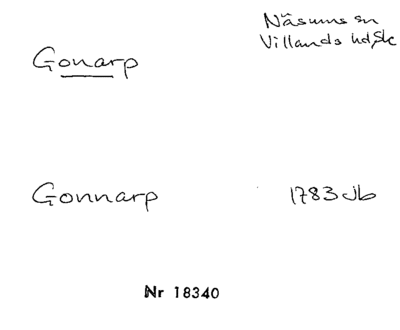 Gonarp
Näsums sn
Villands hd, Sk
Gonnarp
1783 Jb
Nr 18340